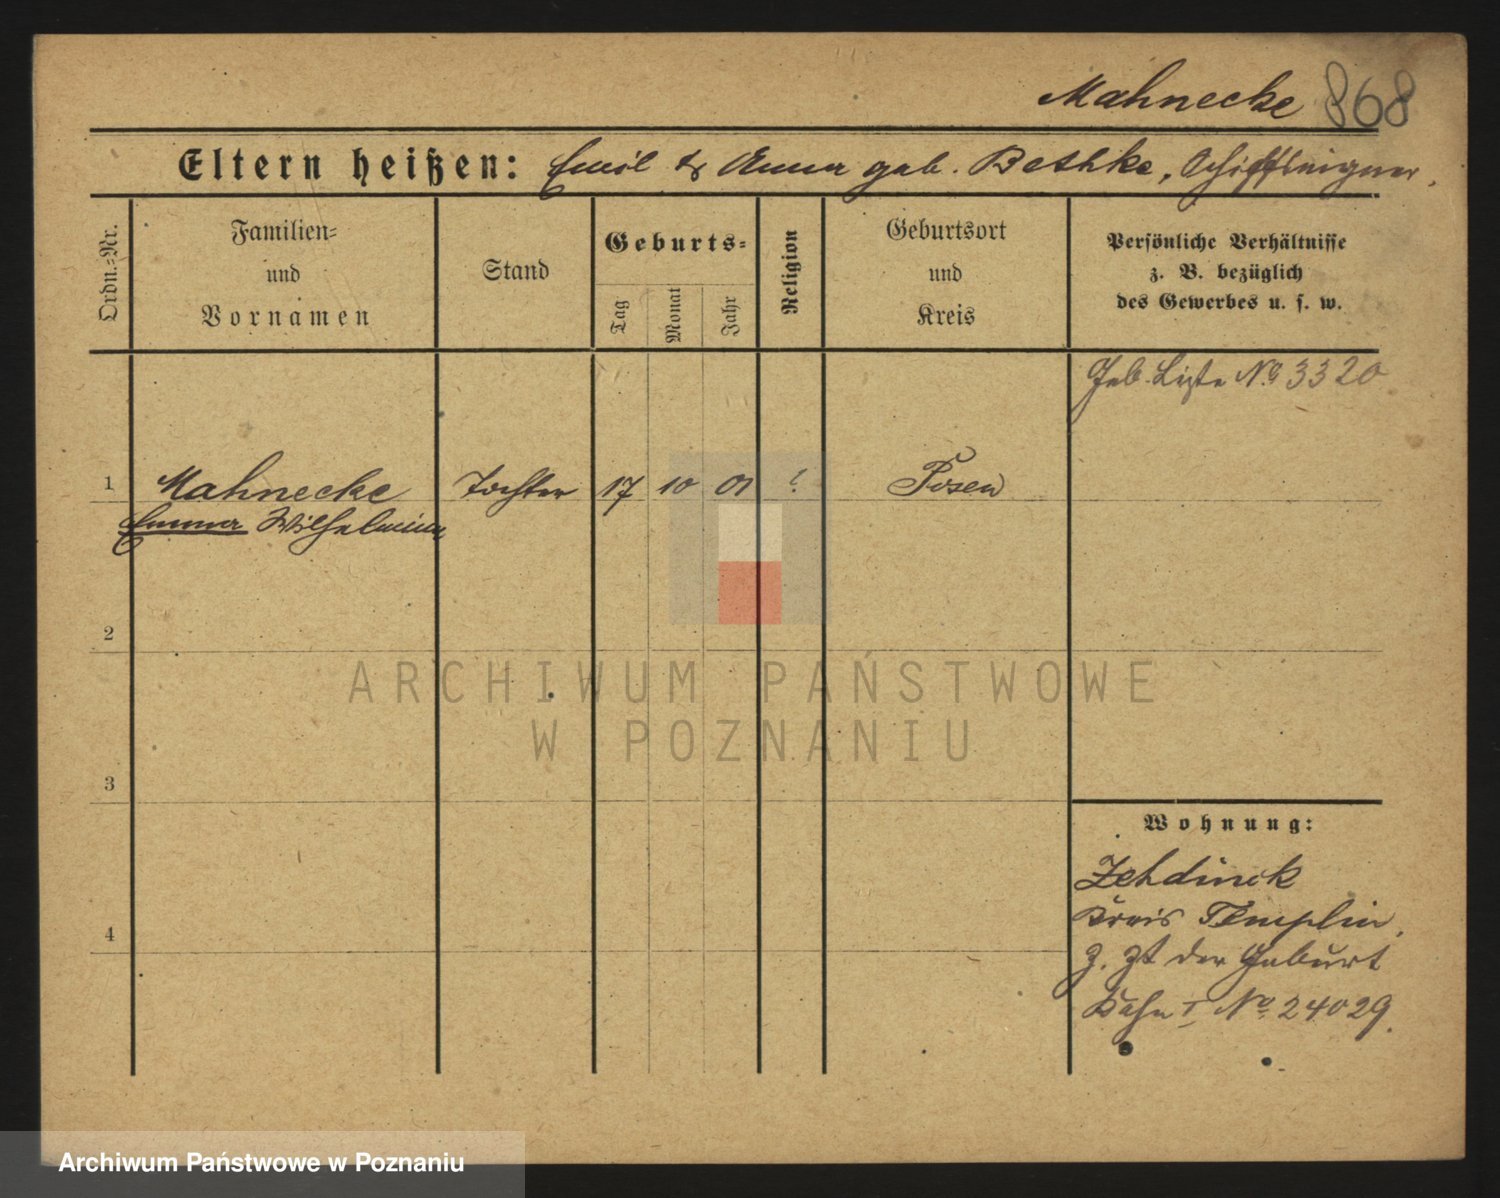 Mahnecke 868
Eltern heißen: Emil & Anna geb. Bethke, Schiffseigner.
Ordn.-Nr.
Familien-
und
Vornamen
Stand
Geburts-
Tag
Monat
Jahr
Religion
Geburtsort
und
Kreis
Persönliche Verhältnisse
z. B. bezüglich
des Gewerbes u. s. w.
Geb. Liste No 3320
1 Mahnecke Tochter 17 10 01 ? Posen
Emma Wilhelmine
2
3
4
Wohnung:
Zehdenick
Kreis Templin.
z. Zt der Geburt
Kahn I No 24029.
ARCHIWUM PAŃSTWOWE
W POZNANIU
Archiwum Państwowe w Poznaniu